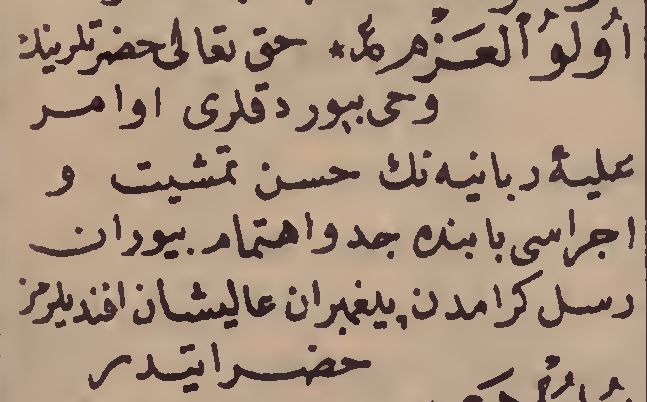 اُولُو ٱلْعَزْم * حق تعالى حضرتلرينك
وحى بيوردقلرى اوامر
عليهٔ ربانيه نك حسن تمشيت و
اجراسى بابنده جد و اهتمام بيوران
رسل كرامدن پيغمبران عاليشان افنديلرمز
حضراتيدر